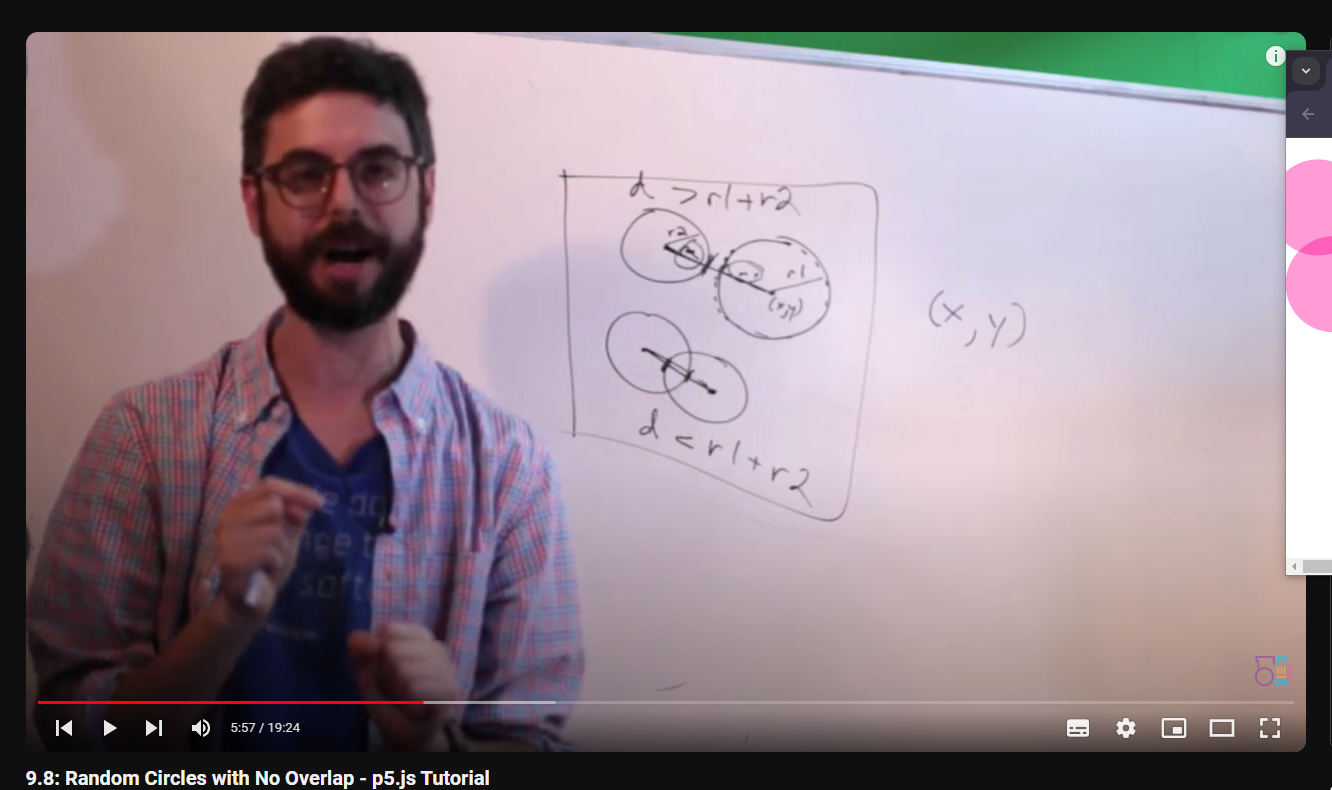 d > r1+r2
r2
r1
(x,y)
(x,y)
d < r1+r2
5:57 / 19:24
9.8: Random Circles with No Overlap - p5.js Tutorial